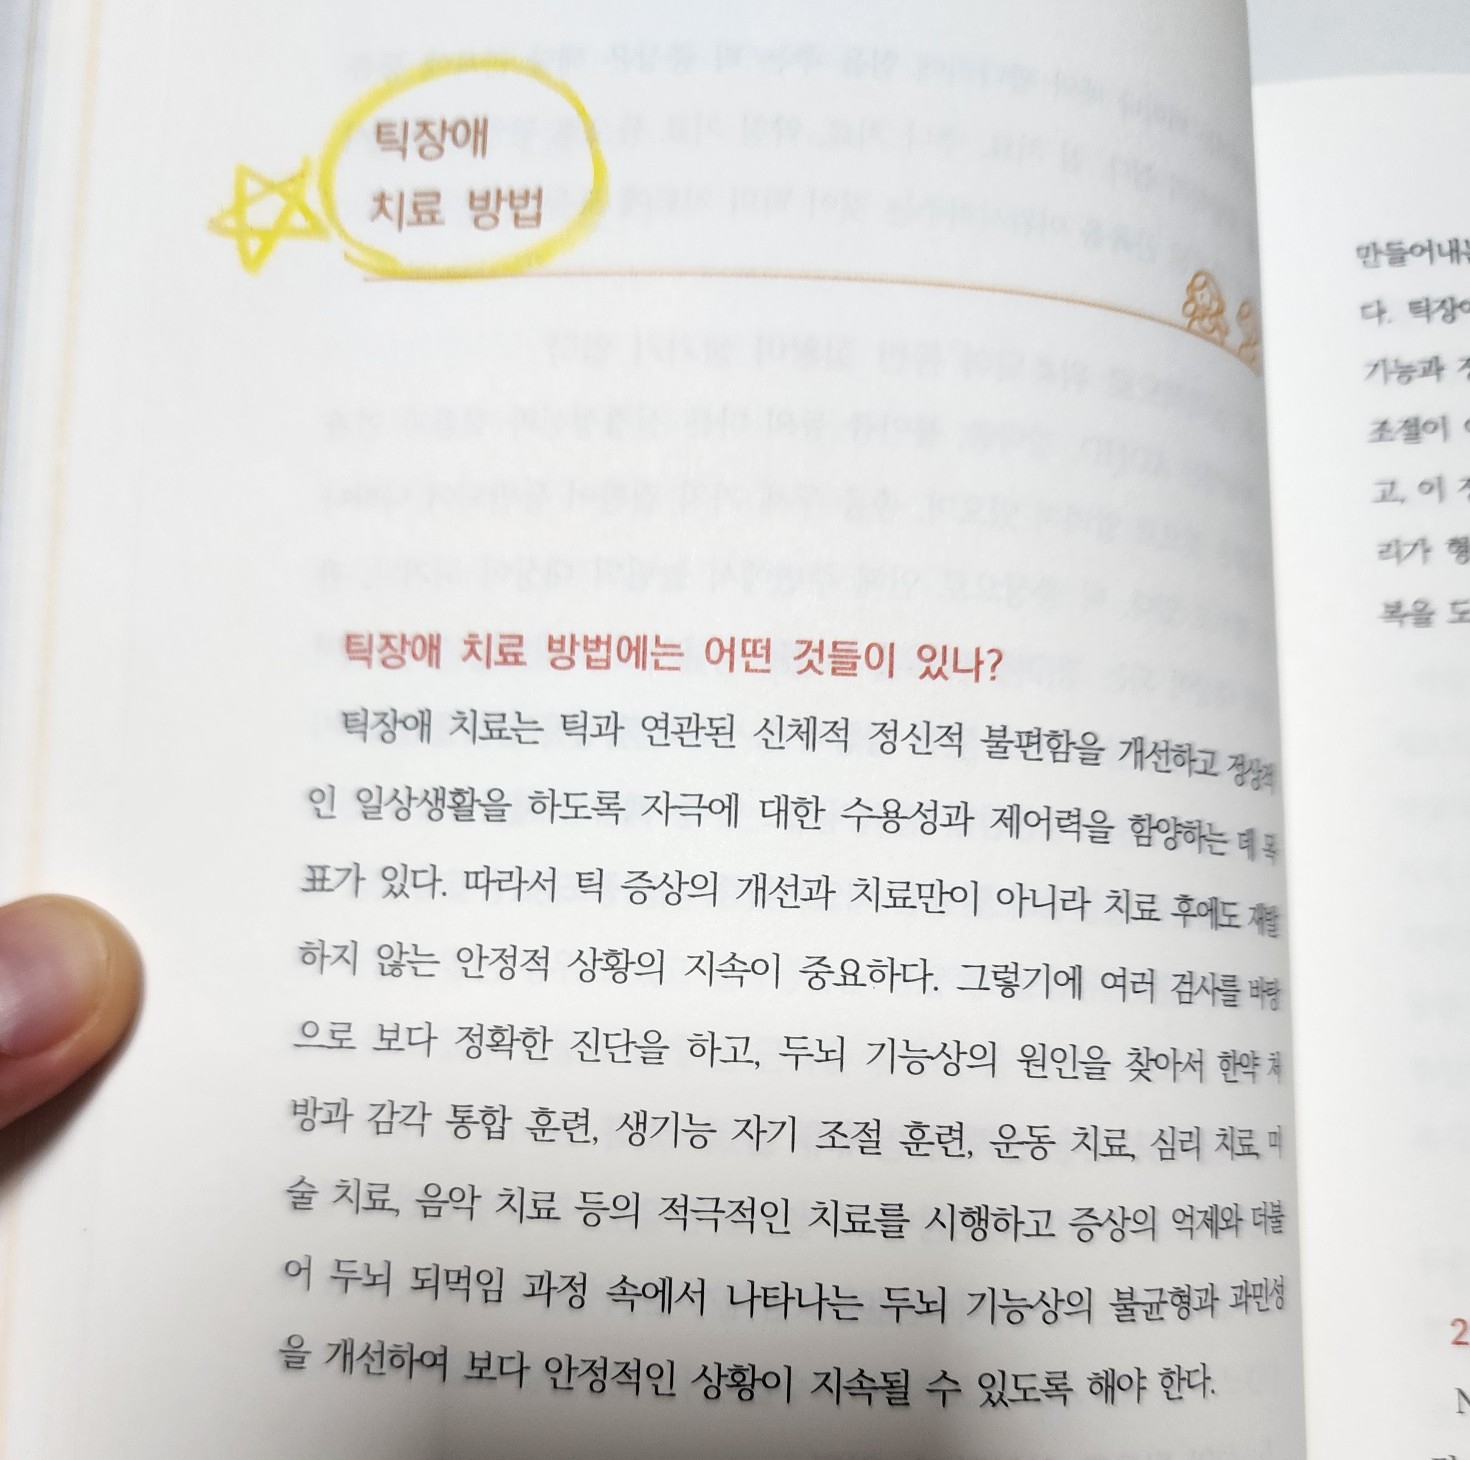 틱장애
치료 방법
틱장애 치료 방법에는 어떤 것들이 있나?
틱장애 치료는 틱과 연관된 신체적 정신적 불편함을 개선하고 정상적
인 일상생활을 하도록 자극에 대한 수용성과 제어력을 함양하는 데 목
표가 있다. 따라서 틱 증상의 개선과 치료만이 아니라 치료 후에도 재발
하지 않는 안정적 상황의 지속이 중요하다. 그렇기에 여러 검사를 바탕
으로 보다 정확한 진단을 하고, 두뇌 기능상의 원인을 찾아서 한약 처
방과 감각 통합 훈련, 생기능 자기 조절 훈련, 운동 치료, 심리 치료, 미
술 치료, 음악 치료 등의 적극적인 치료를 시행하고 증상의 억제와 더불
어 두뇌 되먹임 과정 속에서 나타나는 두뇌 기능상의 불균형과 과민성
을 개선하여 보다 안정적인 상황이 지속될 수 있도록 해야 한다.
만들어내는
다. 틱장애
기능과
조절이
고, 이
리가 행
복을 도
2